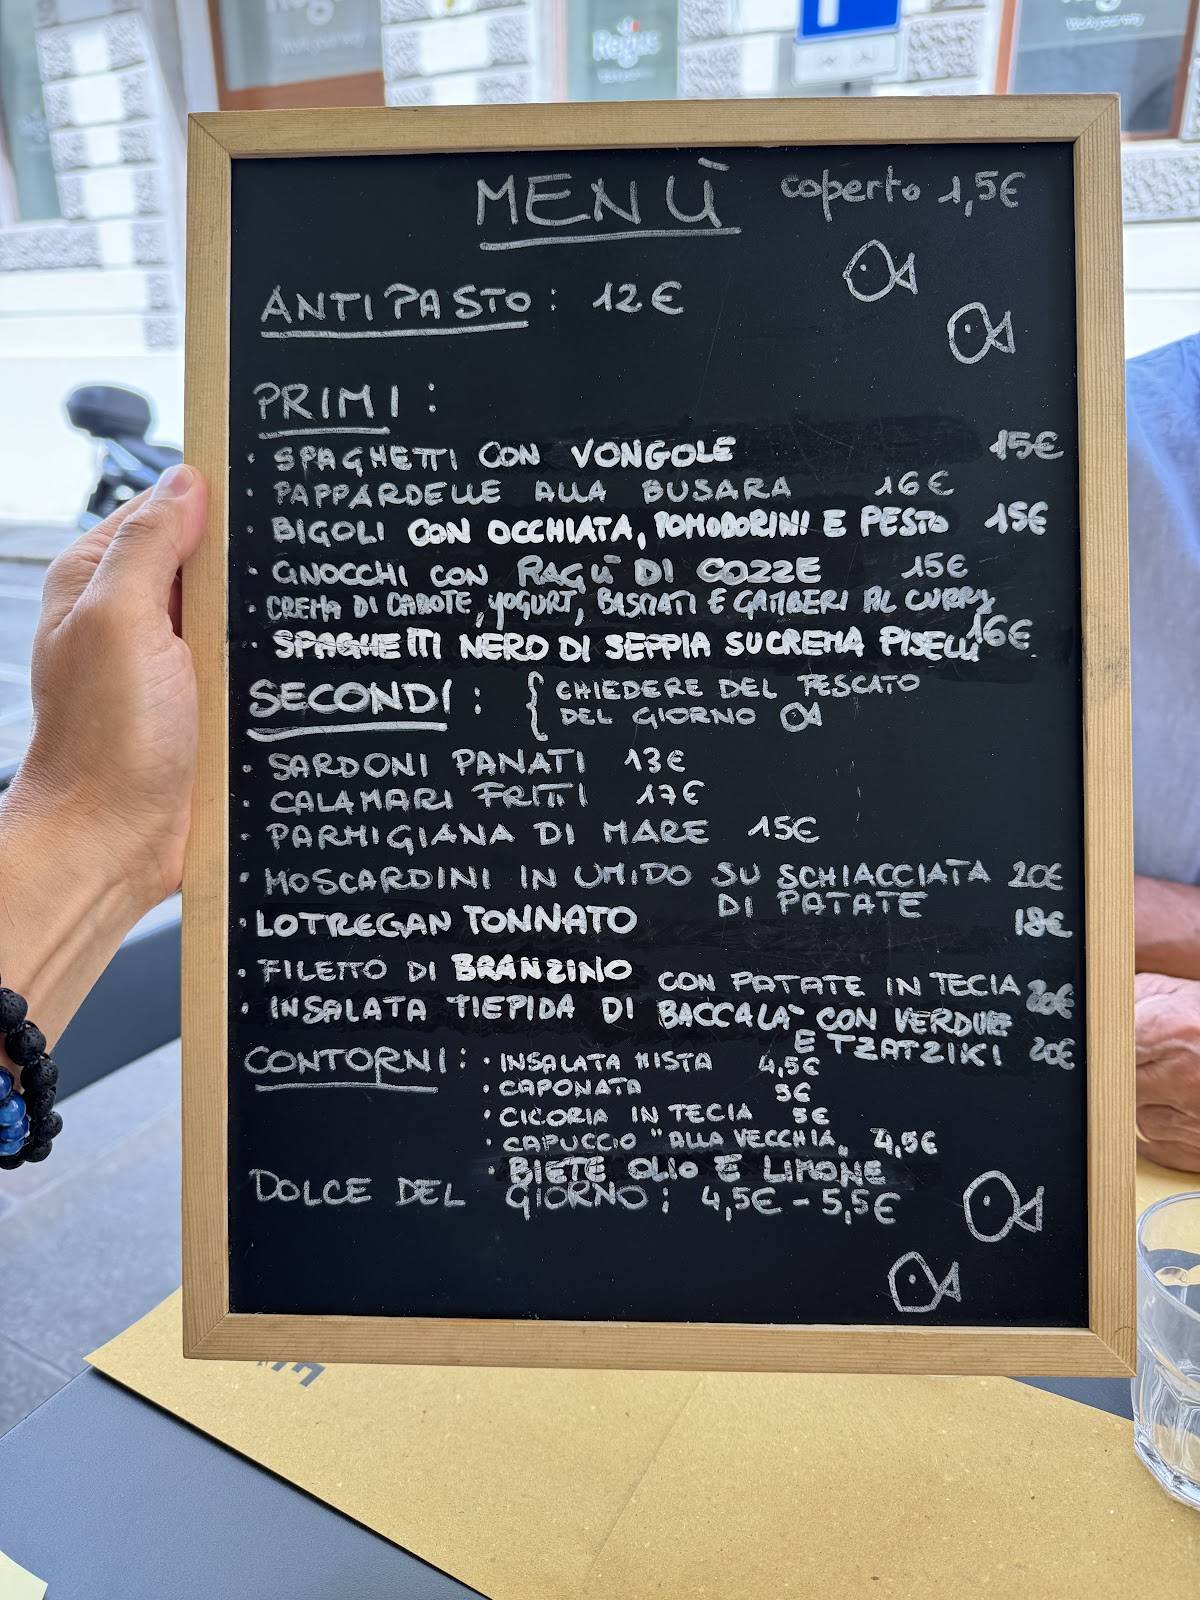 Regus
Work your way
Regus
Work your way
MENÙ coperto 1,5€
ANTIPASTO: 12€
PRIMI:
· SPAGHETTI CON VONGOLE 15€
· PAPPARDELLE ALLA BUSARA 16€
· BIGOLI CON OCCHIATA, POMODORINI E PESTO 15€
· GNOCCHI CON RAGÙ DI COZZE 15€
· CREMA DI CAROTE, YOGURT, BASMATI E GAMBERI AL CURRY
· SPAGHETTI NERO DI SEPPIA SU CREMA PISELLI 16€
SECONDI: { CHIEDERE DEL PESCATO
DEL GIORNO
· SARDONI PANATI 13€
· CALAMARI FRITTI 17€
· PARMIGIANA DI MARE 15€
· MOSCARDINI IN UMIDO SU SCHIACCIATA 20€
DI PATATE
· LOTREGAN TONNATO 18€
· FILETTO DI BRANZINO CON PATATE IN TECIA 20€
· INSALATA TIEPIDA DI BACCALA` CON VERDURE
E TZATZIKI 20€
CONTORNI: · INSALATA MISTA 4,5€
· CAPONATA 5€
· CICORIA IN TECIA 5€
· CAPUCCIO "ALLA VECCHIA" 4,5€
· BIETE OLIO E LIMONE
DOLCE DEL GIORNO: 4,5€ - 5,5€